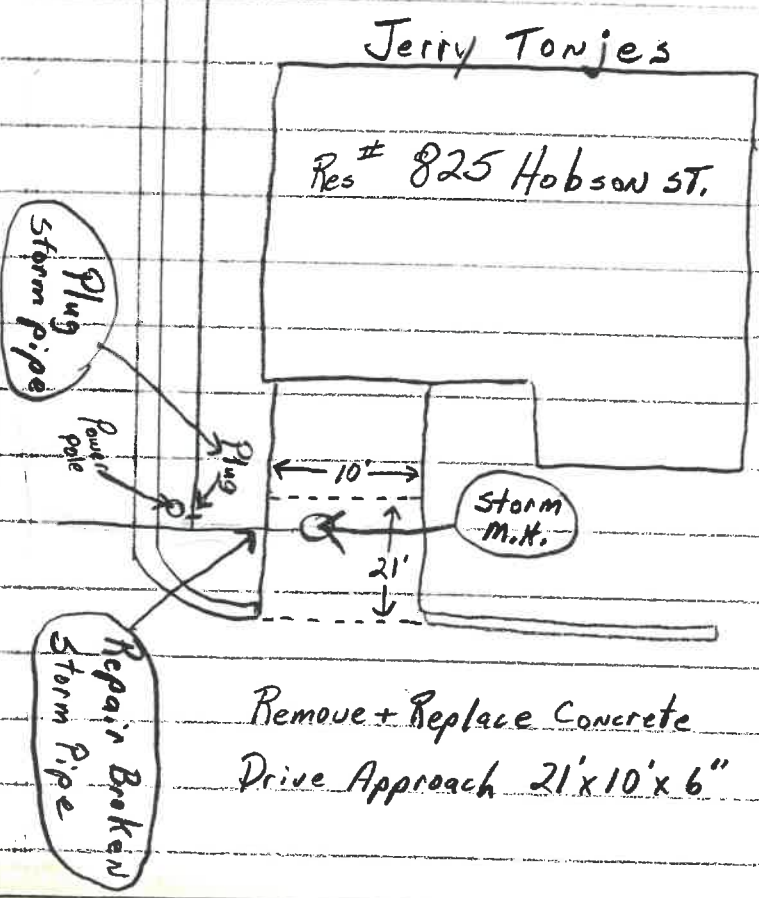 Jerry Tonjes
Res # 825 Hobson ST.
Plug
Storm Pipe
Power
Pole
Plug
10'
Storm
M.H.
21'
Repair Broken
Storm Pipe
Remove + Replace Concrete
Drive Approach 21'x10'x6"